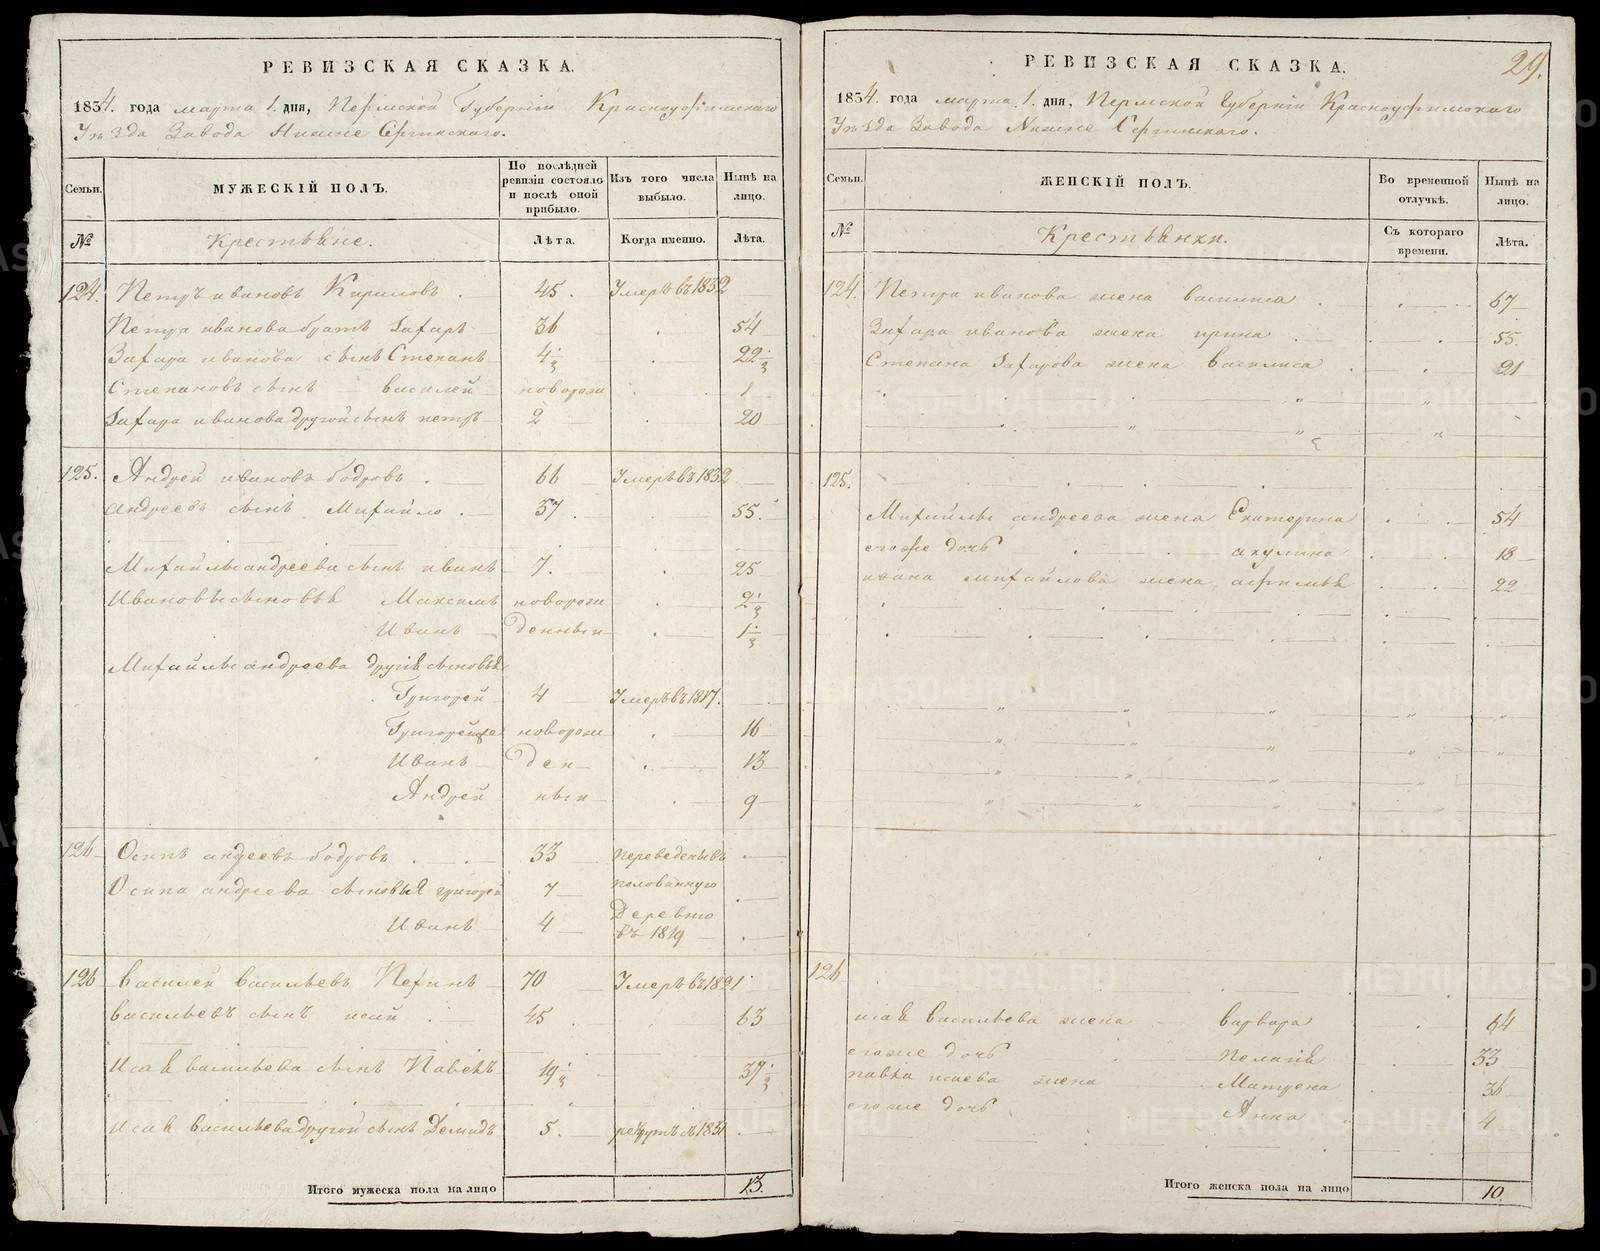 РЕВИЗСКАЯ СКАЗКА.
1834. года марта 1. дня, Пермской Губернии Красноуфимскаго
Уѣзда Завода Нижне Сергинскаго.
Семьи. МУЖЕСКІЙ ПОЛЪ. По послѣдней ревизіи состояло и послѣ оной прибыло. Изъ того числа выбыло. Нынѣ на лицо.
№ Крестьяне. Лѣта. Когда именно. Лѣта.
124. Петръ ивановъ Кириловъ 45. Умеръ въ 1832
Петра иванова братъ Захаръ 36 54
Захара иванова сынъ Степанъ 4 1/2 22 1/2
Степановъ сынъ василей новорожд 1
Захара иванова другой сынъ петръ 2 20
125. Андрей ивановъ бодровъ 66 Умеръ въ 1832
андреевъ сынъ Михайло 37. 55.
Михайлы андреева сынъ иванъ 7. 25
Ивановы сыновья Максимъ новорож 2 1/2
Иванъ денныи 1 1/2
Михайлы андреева другія сыновья
Григорей 4 Умеръ въ 1817.
Григорей же новорож 16
Иванъ ден 13
Андрей ныи 9
126 Осипъ андеевъ бодровъ 33 переведены въ
Осипа андреева сыновья григорей 7 полованную
Иванъ 4 Деревню
въ 1819
126 василей васильевъ 70 Умеръ въ 1821
васильевъ сынъ исай 45 63
Исая васильева сынъ Павелъ 19 1/2 37 1/2
Исая васильева другой сынъ Демидъ 5. рекрутъ въ 1831
Итого мужеска пола на лицо 13.
29.
РЕВИЗСКАЯ СКАЗКА.
1834. года марта 1. дня, Пермской Губерніи Красноуфимскаго
Уѣзда Завода Нижне Сергинскаго.
Семьи. ЖЕНСКІЙ ПОЛЪ. Во временной отлучкѣ. Нынѣ на лицо.
№ Крестьянки. Съ котораго времени. Лѣта.
124. Петра иванова жена василиса 67
Захара иванова жена ирина 55.
Степана Захарова жена василиса 21
125.
Михайлы андреева жена Екатерина 54
его же дочь акулина 18
ивана михайлова жена афимья 22
126
исая васильева жена варвара 64
его же дочь Пелагія 33
павла исаева жена Матрена 36
его же дочь Анна 4
Итого женска пола на лицо 10.
METRIKI.GASO-URAL.RU